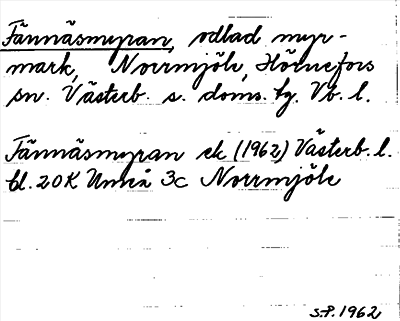 Fännäsmyran, odlad myr-
mark, Norrmjöle, Hörnefors
sn. Västerb. s. doms. tg. Vb. l.
Fännäsmyran ek (1962) Västerb. l.
bl. 20 K Umeå 3c Norrmjöle
S.P. 1962